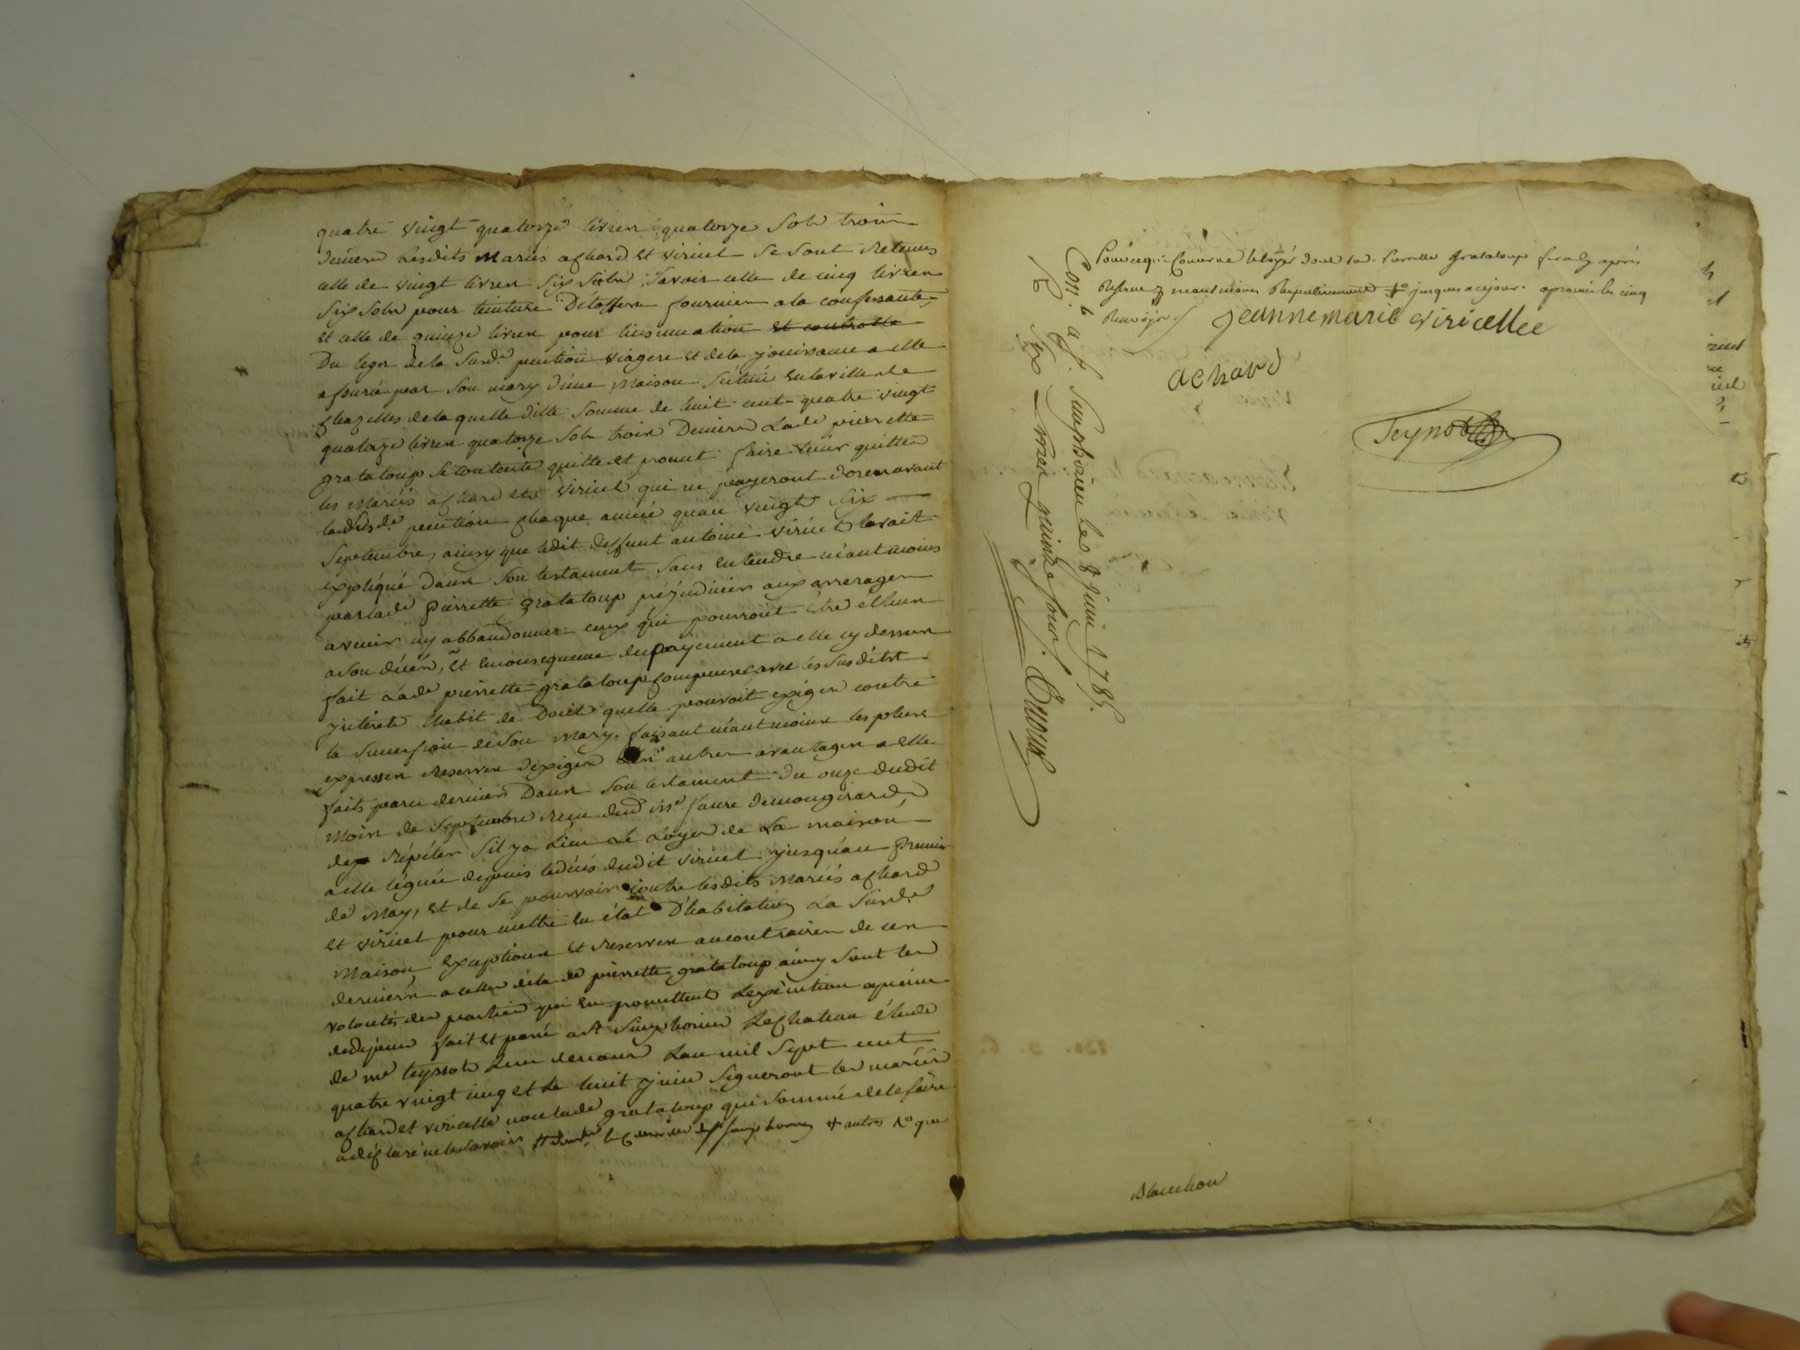 quatre vingt quatorze livres quatorze sols trois
deniers lesdits mariés achard et viricel se sont retenus
celle de vingt livres six sols savoir celle de cinq livres
six sols pour teinture fournies a la confessante
et celle de quinze livres pour linsinuation et controlle
Du legs de la susd.e pention viagere et de la jouissance a elle
assurée par son mary d'une maison située en la ville de
chazelles de laquelle ditte somme de huit cent quatre vingt
quatorze livres quatorze sols trois deniers lad.e pierrette
grataloup se contente quitte et promet faire tenir quittes
les mariés achard et viricel qui ne payeront dorenavant
lad. susd.e pention chaque année quau vingt six
septembre, ainsy que ledit deffunt antoine viricel lavait
éxpliqué dans son testament sans entendre néantmoins
par lad.e pierrette grataloup préjudicier aux arrerages
avenir ny abbandonner ceux qui pourront être échus
a son décés, et en consequence du payement a elle cy dessus
fait lad.e pierrette grataloup les susdits
jnterets habit de doeil quelle pouvoit exiger contre
la succession de son mary, faisant néantmoins les plus
expresses reserves dexiger les autres avantages a elle
faits par ce dernier dans son testament du onze dudit
mois de septembre reçu dud. m.e faure demongirard,
de répéter sil y a lieu le loyer de la maison
a elle léguée depuis le décés dudit viricel jusquau premier
de may, et de se pourvoir contre lesdits mariés achard
et viricel pour mettre en état d'habitation la susd.e
maison, exceptions et reserves au contraires de ces
derniers a celles de la d.e pierrette grataloup ainsy sont les
volontés des parties qui en promettent lexécution a peine
de dépens fait et passé a st simphorien le chateau étude
de m.e teyssot lun de nous lan mil sept cent
quatre vingt cinq et le huit juin signeront les mariés
achard et viricelle non lad.e grataloup qui sommée de le faire
a déclaré ne le savoir + autres n.o que
Pour ce qui concerne le loyer dont lad. Pierrette grataloup fera cy après
Reserve néantmoins jusques a ce jour. aprouvé les cinq
Renvoys
Jeanne marie viricellee
achard
Teyssot
Con.lé a st. Simphorien le 8 juin 1785.
R. six livres quinze sous.
Blanchon